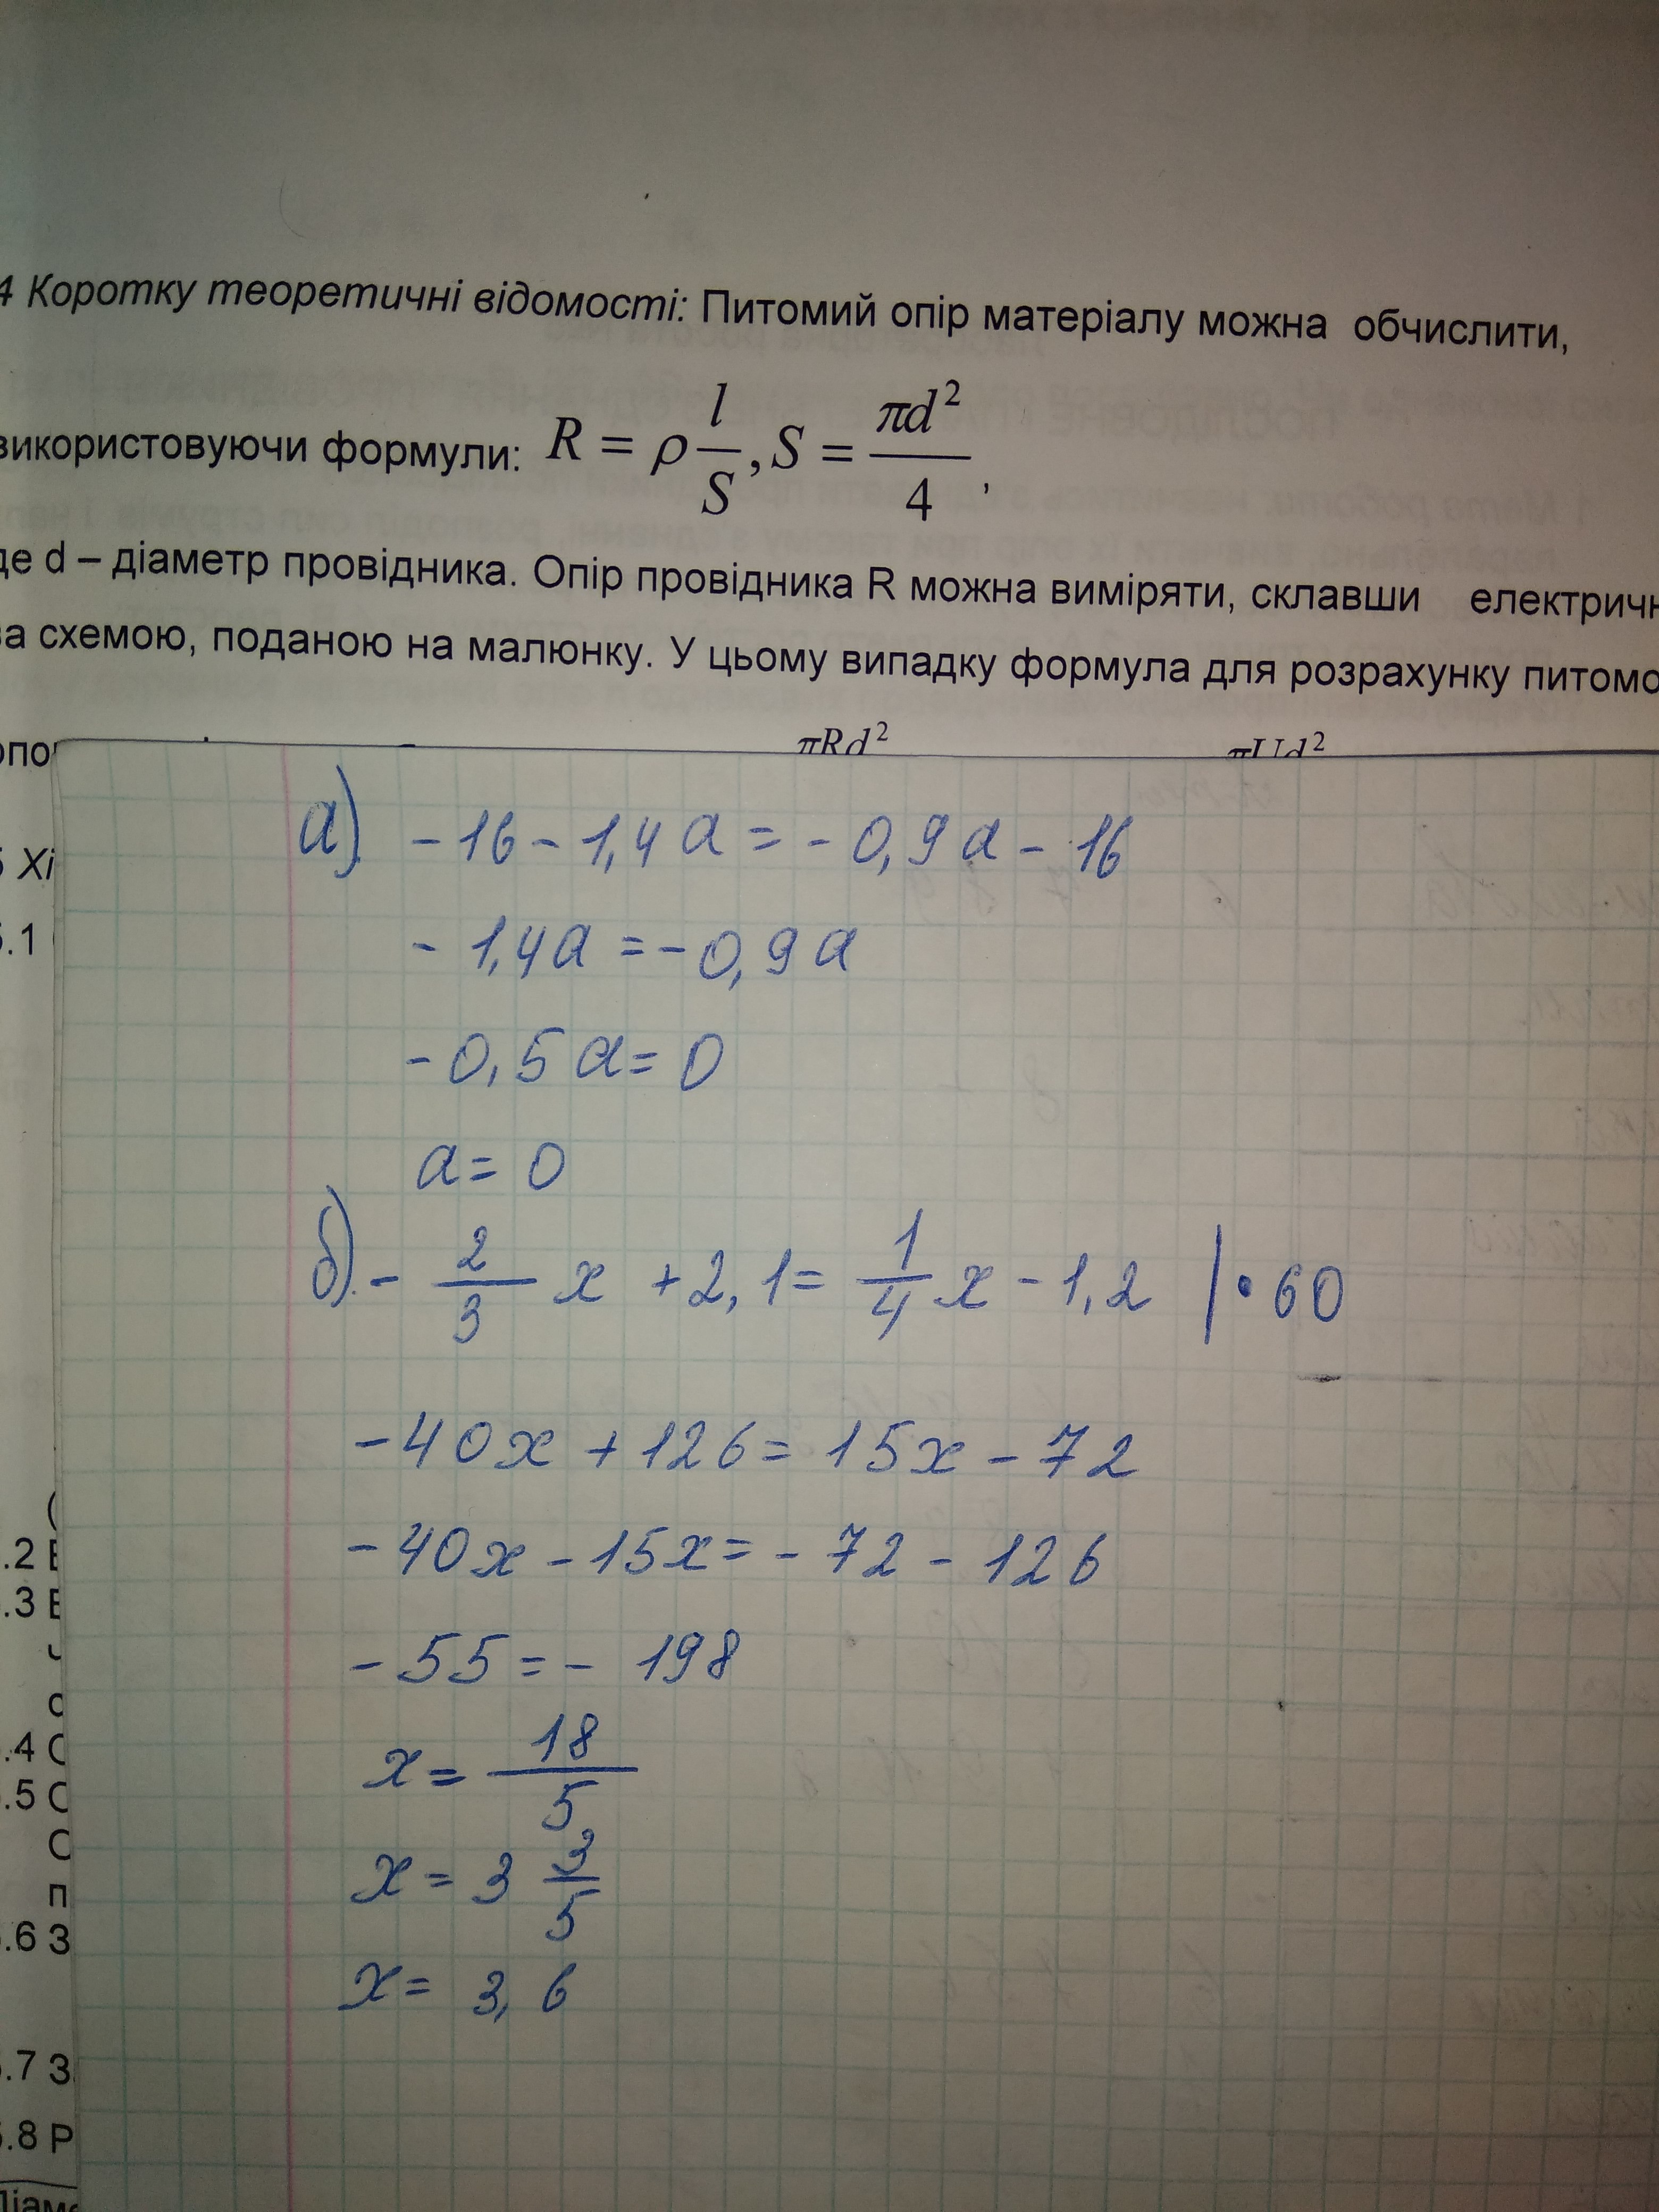 4 Коротку теоретичні відомості: Питомий опір матеріалу можна обчислити,
використовуючи формули: R = ρ l/S, S = πd²/4,
де d – діаметр провідника. Опір провідника R можна виміряти, склавши електричн
за схемою, поданою на малюнку. У цьому випадку формула для розрахунку питомо
опо πRd² πUd²
а) -16 - 1,4a = -0,9a - 16
5 Хі
5.1
-1,4a = -0,9a
-0,5a = 0
a = 0
б) -2/3 x + 2,1 = 1/4 x - 1,2 | • 60
-40x + 126 = 15x - 72
.2
-40x - 15x = -72 - 126
.3
-55 = -198
x = 18/5
.4 С
.5 С
x = 3 3/5
п
.6 З
x = 3,6
.7 З
.8 Р
Діаме